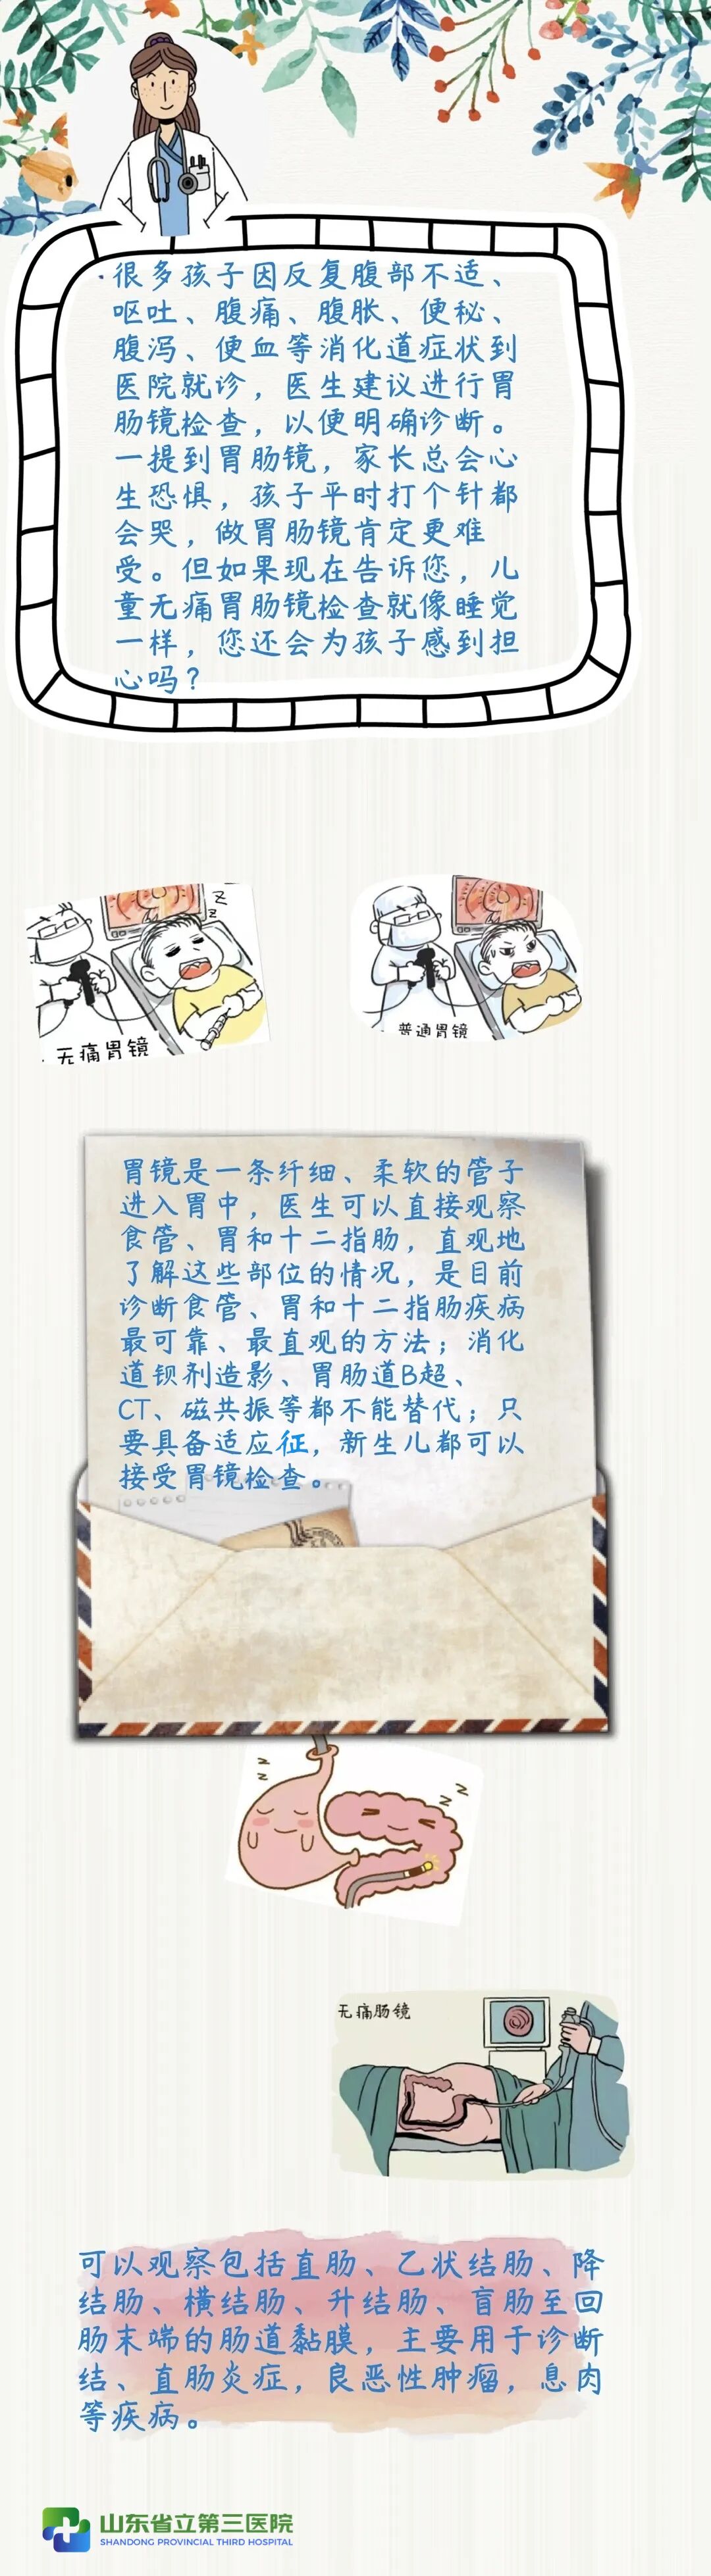 很多孩子因反复腹部不适、
呕吐、腹痛、腹胀、便秘、
腹泻、便血等消化道症状到
医院就诊，医生建议进行胃
肠镜检查，以便明确诊断。
一提到胃肠镜，家长总会心
生恐惧，孩子平时打个针都
会哭，做胃肠镜肯定更难
受。但如果现在告诉您，儿
童无痛胃肠镜检查就像睡觉
一样，您还会为孩子感到担
心吗？
z
z
无痛胃镜
普通胃镜
胃镜是一条纤细、柔软的管子
进入胃中，医生可以直接观察
食管、胃和十二指肠，直观地
了解这些部位的情况，是目前
诊断食管、胃和十二指肠疾病
最可靠、最直观的方法；消化
道钡剂造影、胃肠道B超、
CT、磁共振等都不能替代；只
要具备适应征，新生儿都可以
接受胃镜检查。
z
z
z
z
无痛肠镜
可以观察包括直肠、乙状结肠、降
结肠、横结肠、升结肠、盲肠至回
肠末端的肠道黏膜，主要用于诊断
结、直肠炎症，良恶性肿瘤，息肉
等疾病。
山东省立第三医院
SHANDONG PROVINCIAL THIRD HOSPITAL